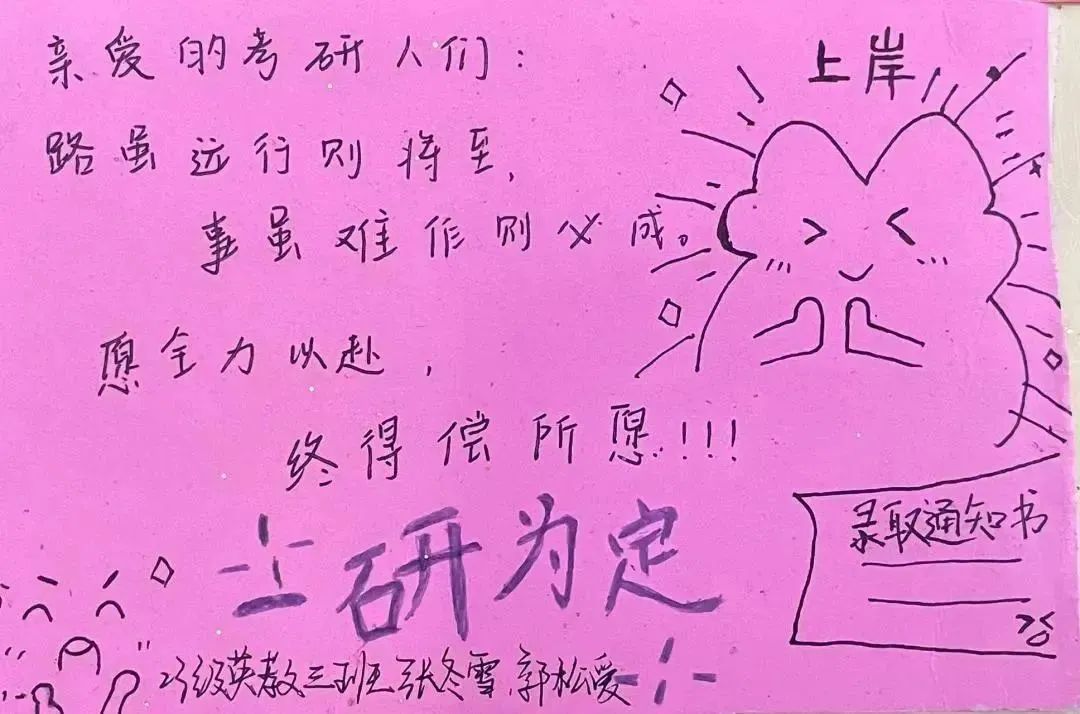 亲爱的考研人们：
上岸
路虽远行则将至，
事虽难作则必成。
愿全力以赴，
终得偿所愿！！！
录取通知书
一研为定
23级英教三班张冬雪.郭松爱